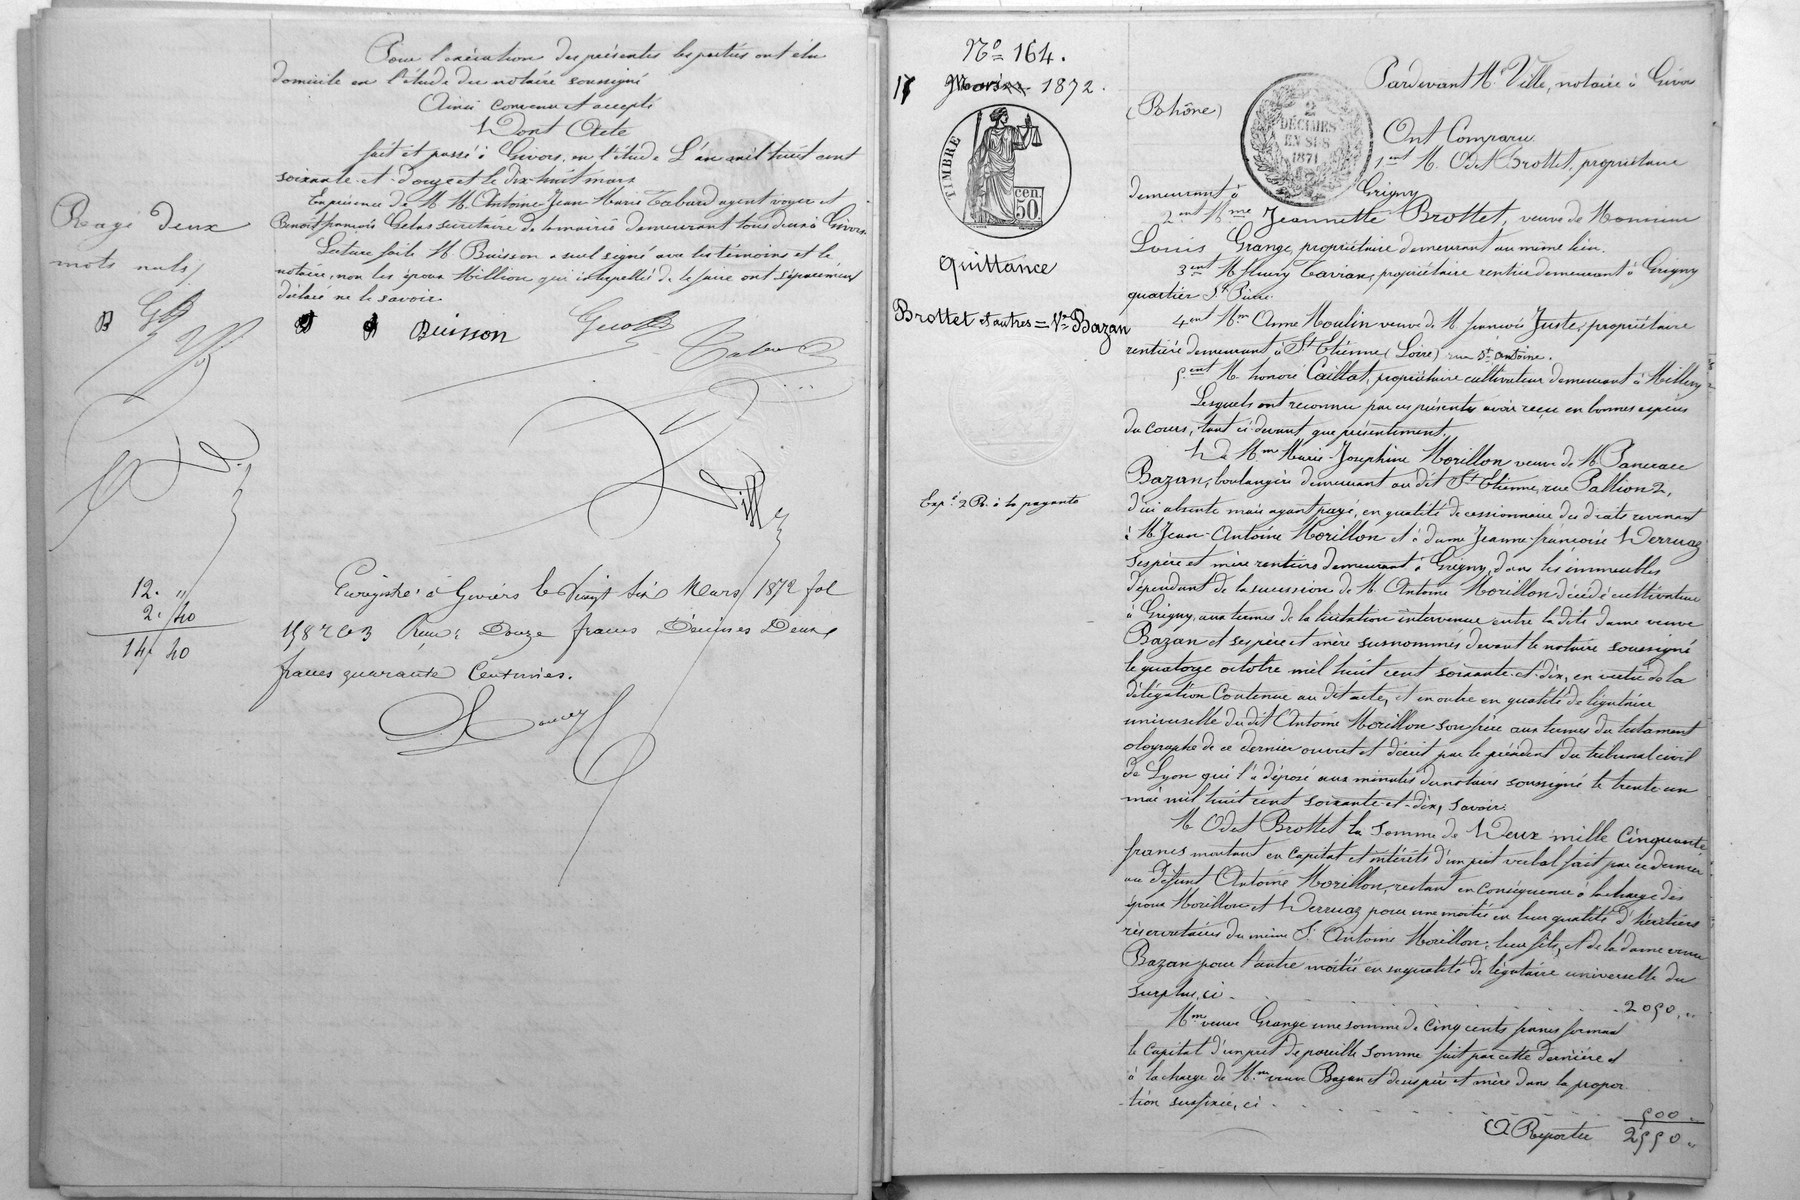 Pour l'exécution des présentes les parties ont élu
domicile en l'étude du notaire soussigné
Ainsi convenu et accepté
Dont Acte
fait et passé à Givors, en l'étude L'an mil huit cent
soixante-et-douze et le dix-huit mars
En présence de M. M. Antoine-Jean-Marie Tabard agent voyer et
Benoit françois Gelas secrétaire de la mairie demeurant tous deux à Givors.
Lecture faite M. Buisson a seul signé avec les témoins et le
notaire, non les époux Million qui interpellés de le faire ont séparément
déclaré ne le savoir.
Rayé deux
mots nuls
B
Buisson
12. "
2. 40
14 40
Enregistré à Givors le Vingt six Mars 1872 fol
Reçu: Douze francs Décimes Deux
francs quarante Centimes.
No 164.
17 Mars 1872.
TIMBRE
cen. 50.
2 DÉCIMES EN SUS 1871
quittance
Brottet et autres = Ve Bazan
Exp. 2 R. à la payante
Pardevant Me Ville, notaire à Givors
(Rhône)
Ont Comparu
1ent M. Odet Brottet, propriétaire
demeurant à Grigny
2ent Mme Jeannette Brottet, veuve de Monsieur
Louis Grange, propriétaire demeurant au même lieu.
3ent M fleury Tavian, propriétaire rentier demeurant à Grigny
quartier St Pierre.
4ent Mme Anne Moulin veuve de M. françois Juste, propriétaire
rentière demeurant à St Etienne (Loire) rue St antoine.
5ent M. honoré Caillat, propriétaire cultivateur demeurant à Millery
Lesquels ont reconnu par ces présentes avoir reçu en bonnes espèces
du cours, tant ci-devant que présentement.
De Mme Marie-Josephine Morillon veuve de M. Pancrace
Bazan, boulangère demeurant au dit St Etienne, rue Pallion 2,
d'ici absente mais ayant payé, en qualité de cessionnaire des droits revenant
à M. Jean-Antoine Morillon et à dame Jeanne-françoise Derruaz
ses père et mère rentiers demeurant à Grigny, dans les immeubles
dépendant de la sucession de M. Antoine Morillon décédé cultivateur
à Grigny, aux termes de la licitation intervenue entre la dite dame veuve
Bazan et ses père et mère susnommés devant le notaire soussigné
le quatorze octobre mil huit cent soixante-et-dix, en vertu de la
délégation contenue au dit acte, et en outre en qualité de légataire
universelle du dit Antoine Morillon son frère aux termes du testament
olographe de ce dernier ouvert et décrit par le président du tribunal civil
de Lyon qui l'a déposé aux minutes du notaire soussigné le trente-un
mai mil huit cent soixante-et-dix, savoir.
M. Odet Brottet la somme de Deux mille cinquante
francs montant en capital et intérêts d'un prêt verbal fait par ce dernier
au défunt Antoine Morillon, restant en conséquence à la charge des
époux Morillon et Derruaz pour une moitié en leur qualité d'héritiers
réservataires du même S. Antoine Morillon, leur fils, et de la dame veuve
Bazan pour l'autre moitié en sa qualité de légataire universelle du
surplus, ci . . . . . 2050. "
Mme veuve Grange une somme de cinq cents francs formant
le capital d'un prêt de pareille somme fait par cette dernière et
à la charge de Mme veuve Bazan et de ses père et mère dans la propor
-tion susfixée, ci . . . . . 500 "
A Reporter 2550 "